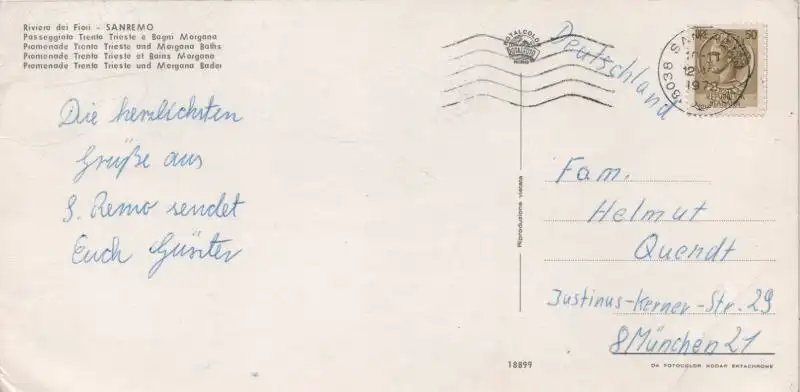 Riviera dei Fiori - SANREMO
Passeggiata Trento Trieste e Bagni Morgana
Promenade Trento Trieste and Morgana Baths
Promenade Trento Trieste et Bains Morgana
Promenade Trento Trieste und Morgana Bader
Die herzlichsten
Grüße aus
S. Remo sendet
Euch Günter
ROTALCOLOR
ROTALFOTO
Deutschland
18038 SAN
1972
50
Riproduzione vietata
Fam.
Helmut
Quendt
Justinus-Kerner-Str. 29
8 München 21
18899
DA FOTOCOLOR KODAK EKTACHROME